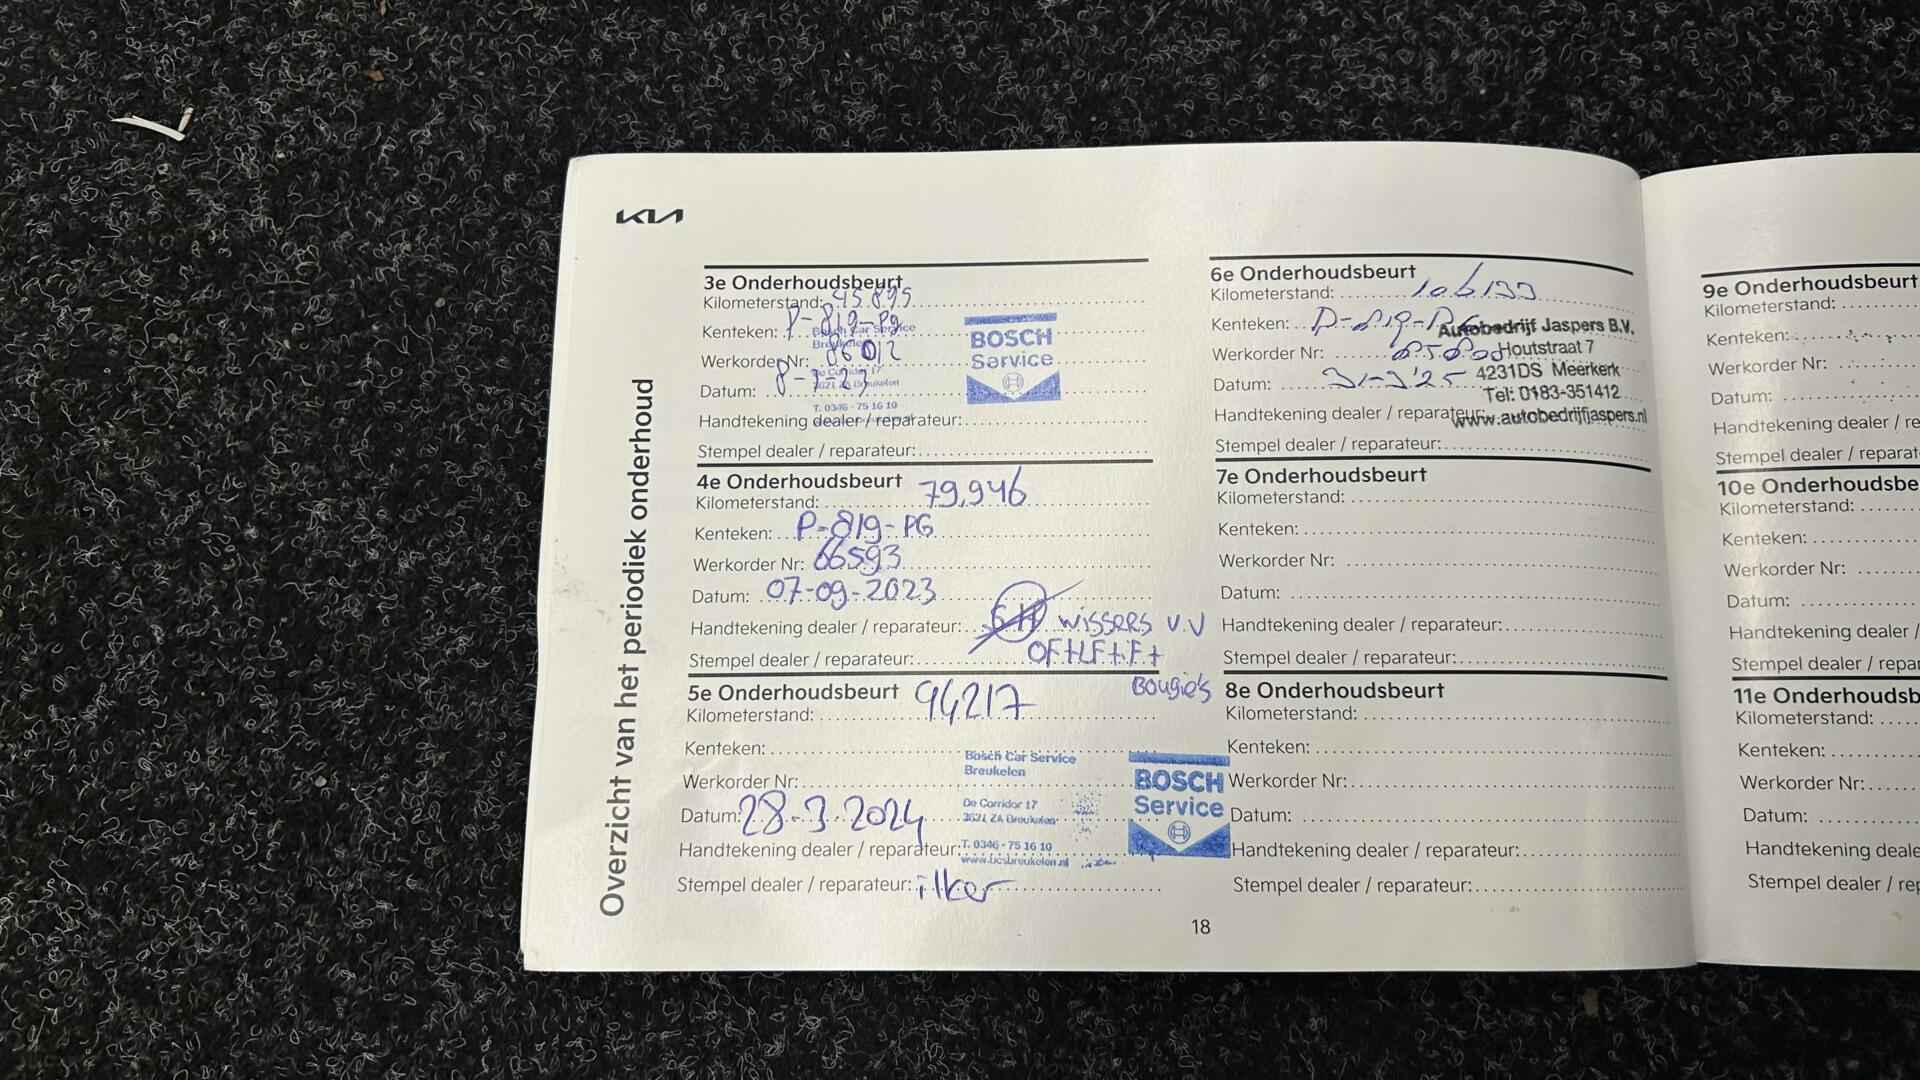 KIA
Overzicht van het periodiek onderhoud
3e Onderhoudsbeurt
Kilometerstand: 45.895
Kenteken: P-819-PG
Werkorder Nr: 66012
Datum: 8-
Handtekening dealer / reparateur:
Stempel dealer / reparateur:
Bosch Car Service
Breukelen
De Corridor 17
3621 ZA Breukelen
T. 0346 - 75 16 10
BOSCH
Service
4e Onderhoudsbeurt
Kilometerstand: 79,946
Kenteken: P-819-PG
Werkorder Nr: 66593
Datum: 07-09-2023
Handtekening dealer / reparateur: wissers v.v
Stempel dealer / reparateur: OF+LF+F+
Bougie's
5e Onderhoudsbeurt
Kilometerstand: 94217
Kenteken:
Werkorder Nr:
Datum: 28-3-2024
Handtekening dealer / reparateur:
Stempel dealer / reparateur: ilker
Bosch Car Service
Breukelen
De Corridor 17
3621 ZA Breukelen
T. 0346 - 75 16 10
www.bcsbreukelen.nl
BOSCH
Service
6e Onderhoudsbeurt
Kilometerstand: 106133
Kenteken: P-819-PG
Werkorder Nr:
Datum: 31-3'25
Handtekening dealer / reparateur:
Stempel dealer / reparateur:
Autobedrijf Jaspers B.V.
Houtstraat 7
4231DS Meerkerk
Tel: 0183-351412
www.autobedrijfjaspers.nl
7e Onderhoudsbeurt
Kilometerstand:
Kenteken:
Werkorder Nr:
Datum:
Handtekening dealer / reparateur:
Stempel dealer / reparateur:
8e Onderhoudsbeurt
Kilometerstand:
Kenteken:
Werkorder Nr:
Datum:
Handtekening dealer / reparateur:
Stempel dealer / reparateur:
18
9e Onderhoudsbeurt
Kilometerstand:
Kenteken:
Werkorder Nr:
Datum:
Handtekening dealer / re
Stempel dealer / reparat
10e Onderhoudsbe
Kilometerstand:
Kenteken:
Werkorder Nr:
Datum:
Handtekening dealer /
Stempel dealer / repar
11e Onderhoudsb
Kilometerstand:
Kenteken:
Werkorder Nr:
Datum:
Handtekening deale
Stempel dealer / rep